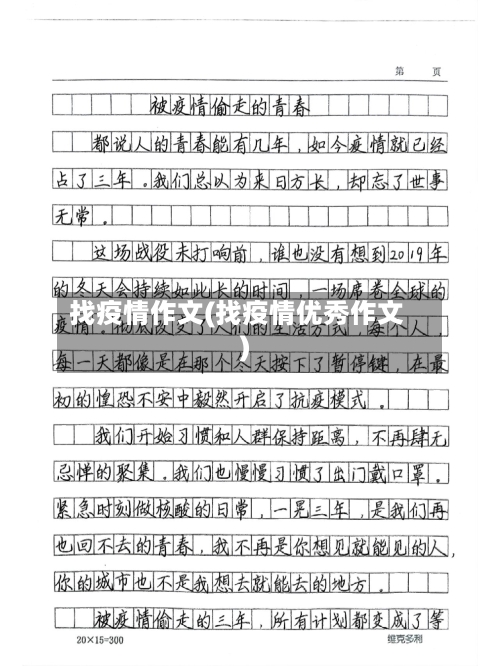 第 页
被疫情偷走的青春
都说人的青春能有几年，如今疫情就已经
占了三年。我们总以为来日方长，却忘了世事
无常。
这场战役未打响前，谁也没有想到2019年
的冬天会持续如此长的时间，一场席卷全球的
找疫情作文(找疫情优秀作文
)
疫情，彻底改变了人们的生活方式，每个人
每一天都像是在那个冬天按下了暂停键，在最
初的惶恐不安中毅然开启了抗疫模式。
我们开始习惯和人群保持距离，不再肆无
忌惮的聚集。我们也慢慢习惯了出门戴口罩。
紧急时刻做核酸的日常，一晃三年，是我们再
也回不去的青春，我不再是你想见就能见的人，
你的城市也不是我想去就能去的地方。
被疫情偷走的三年，所有计划都变成了等
20×15=300
维克多利